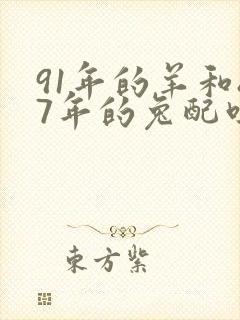 91年的羊和
7年的兔配
東方紫